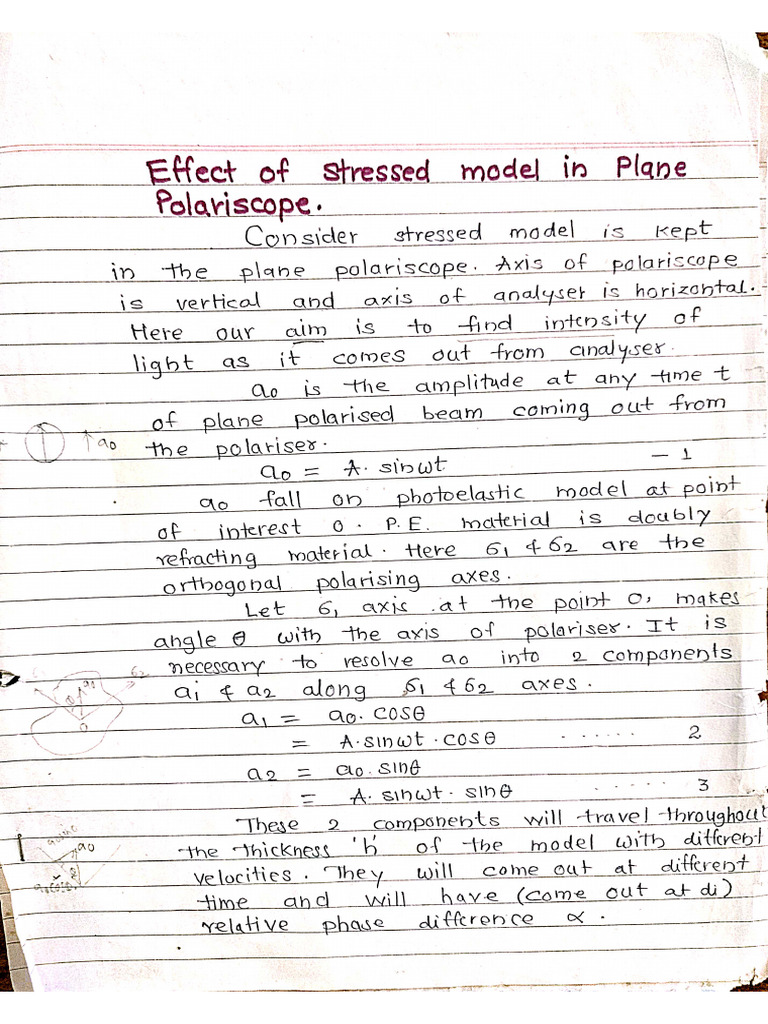 Effect of stressed model in Plane
Polariscope.
Consider stressed model is kept
in the plane polariscope. Axis of polariscope
is vertical and axis of analyser is horizontal.
Here our aim is to find intensity of
light as it comes out from analyser.
a0 is the amplitude at any time t
of plane polarised beam coming out from
a0 the polariser.
a0 = A. sinωt - 1
a0 fall on photoelastic model at point
of interest O. P.E. material is doubly
refracting material. Here σ1 & σ2 are the
orthogonal polarising axes.
Let σ1 axis at the point O, makes
angle θ with the axis of polariser. It is
necessary to resolve a0 into 2 components
a1 & a2 along σ1 & σ2 axes.
a1 = a0. cosθ
= A. sinωt. cosθ ...... 2
a2 = a0. sinθ
= A. sinωt. sinθ ...... 3
These 2 components will travel throughout
the thickness 'h' of the model with different
velocities. They will come out at different
time and will have (come out at di)
relative phase difference α.
σ2
a0
θ
O
a0